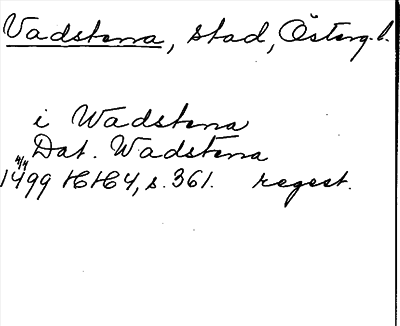 Vadstena, stad, Österg.l.
i Wadstena
Dat. Wadstena
1499 HH 4, s. 361. regest.